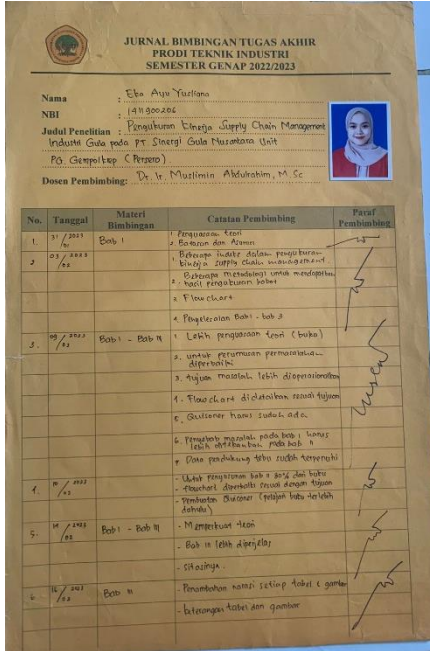 JURNAL BIMBINGAN TUGAS AKHIR
PRODI TEKNIK INDUSTRI
SEMESTER GENAP 2022/2023
Nama : Eka Ayu Yusliana
NBI : 1411900206
Judul Penelitian : Pengukuran Kinerja Supply Chain Management
Industri Gula pada PT Sinergi Gula Nusantara Unit
PG. Gempolkrep (Persero)
Dosen Pembimbing: Dr. Ir. Muslimin Abdulrahim, M.Sc
No. Tanggal Materi Bimbingan Catatan Pembimbing Paraf Pembimbing
1. 31/2023 01 Bab I 1. Penguasaan teori
2. Batasan dan Asumsi
2 03/2023 02 1. Beberapa indeks dalam pengukuran
kinerja supply chain management
2. Beberapa metodologi untuk mendapatkan
hasil pengukuran bobot
3. Flowchart
4. Penyelesaian Bab 1 - bab 3
3. 09/2023 02 Bab I - Bab III 1. Lebih penguasaan teori (buku)
2. untuk perumusan permasalahan
diperbaiki
3. tujuan masalah lebih dioperasionalkan
4. Flowchart didetailkan sesuai tujuan
5. Quisoner harus sudah ada
6. Penyebab masalah pada bab 1 harus
lebih pada bab II
7. Data pendukung tebu sudah terpenuhi
4. 2023 02 - Untuk penyusunan bab II 80% dari buku
- Flowchart diperbaiki sesuai dengan tujuan
- Pembuatan Quisoner (pelajari buku terlebih
dahulu)
5. 2023 02 Bab I - Bab III - Memperkuat teori
- Bab III lebih diperjelas
- Sitasinya
6. 16/2023 02 Bab III - Penambahan narasi setiap tabel & gambar
- keterangan tabel dan gambar